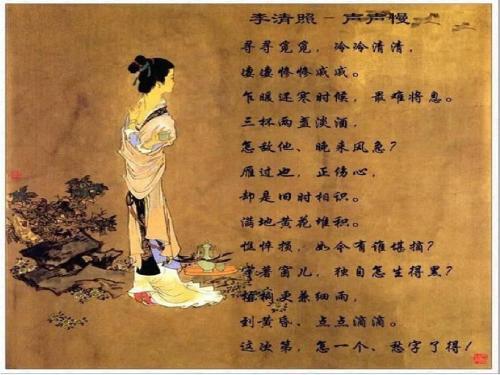 李清照－声声慢
寻寻觅觅，冷冷清清，
凄凄惨惨戚戚。
乍暖还寒时候，最难将息。
三杯两盏淡酒，
怎敌他、晚来风急？
雁过也，正伤心，
却是旧时相识。
满地黄花堆积。
憔悴损，如今有谁堪摘？
守着窗儿，独自怎生得黑？
梧桐更兼细雨，
到黄昏、点点滴滴。
这次第，怎一个、愁字了得！